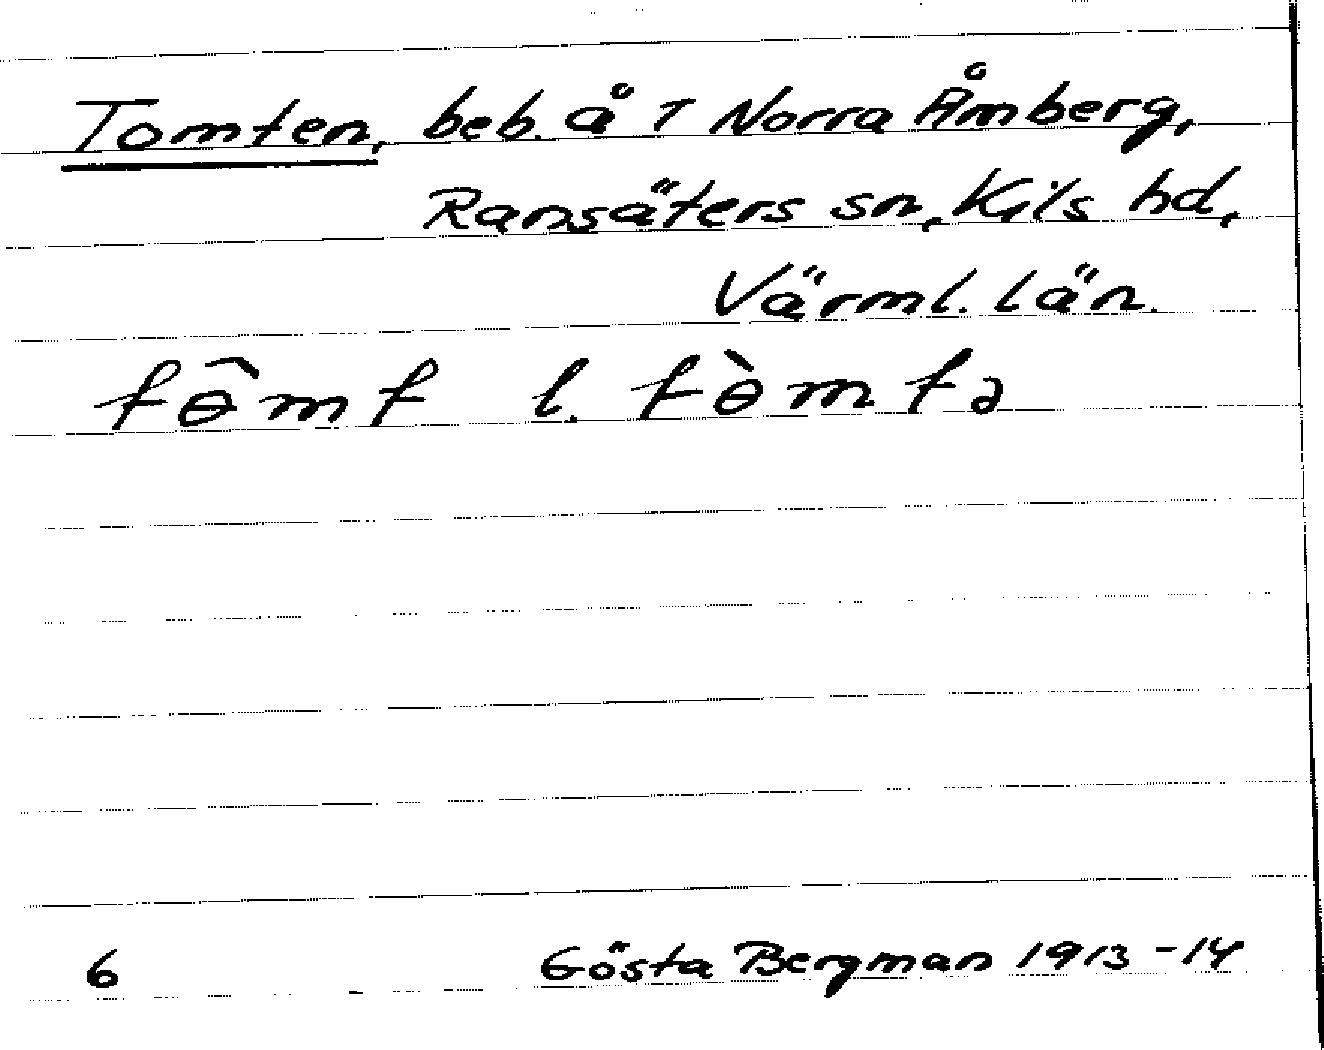 Tomten, beb. å 1 Norra Åmberg,
Ransäters sn, Kils hd,
Värml. län.
tɵ̂mt l. tɵ̀mtə
6 Gösta Bergman 1913-14